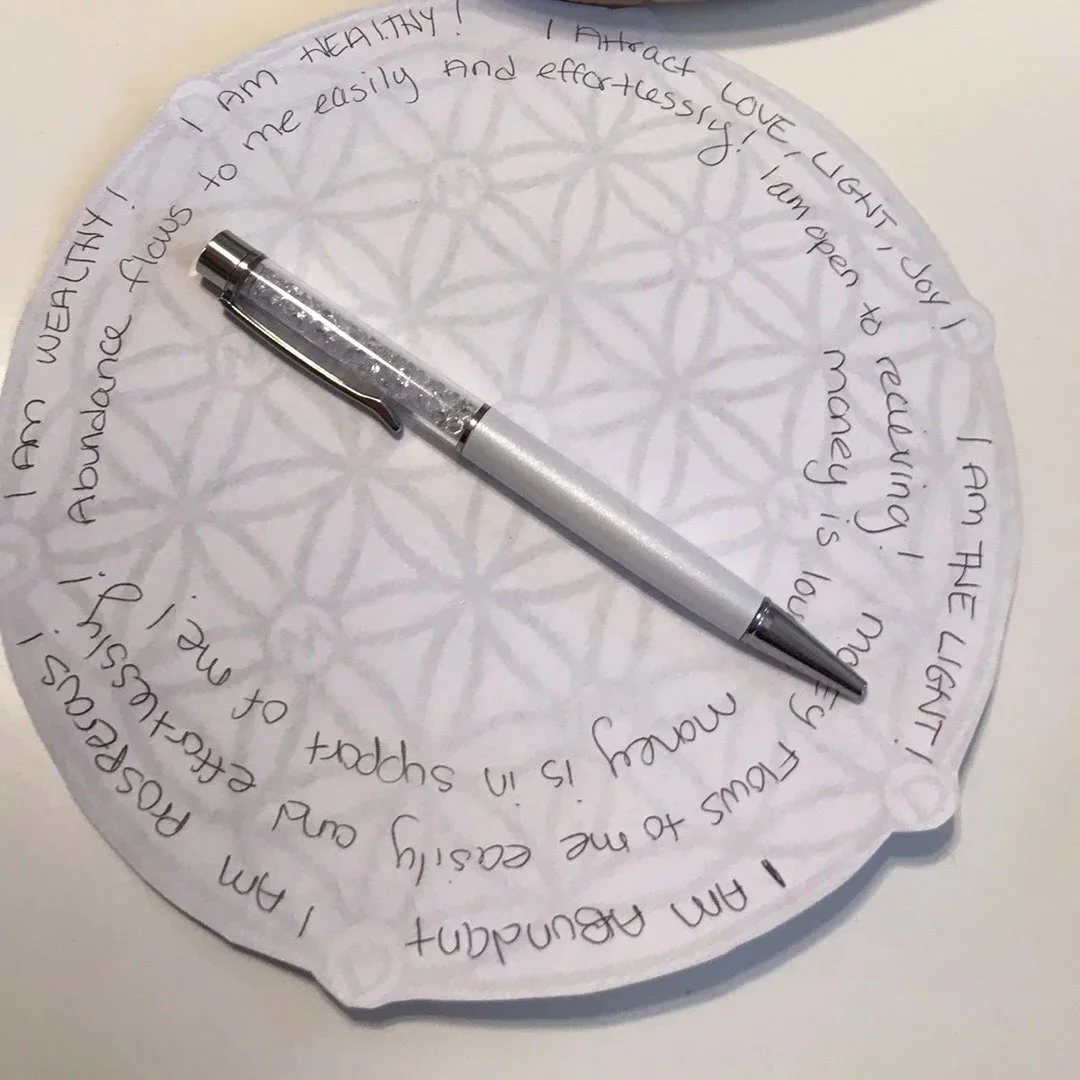 I AM WEALTHY!
I AM HEALTHY!
I Attract LOVE, LIGHT, JOY!
I AM THE LIGHT!
I AM ABundant
I AM PROSPEROUS!
Abundance flows to me easily And effortlessly!
I am open to recieving!
money flows to me easily and effortlessly!
money is
money is in support of me!